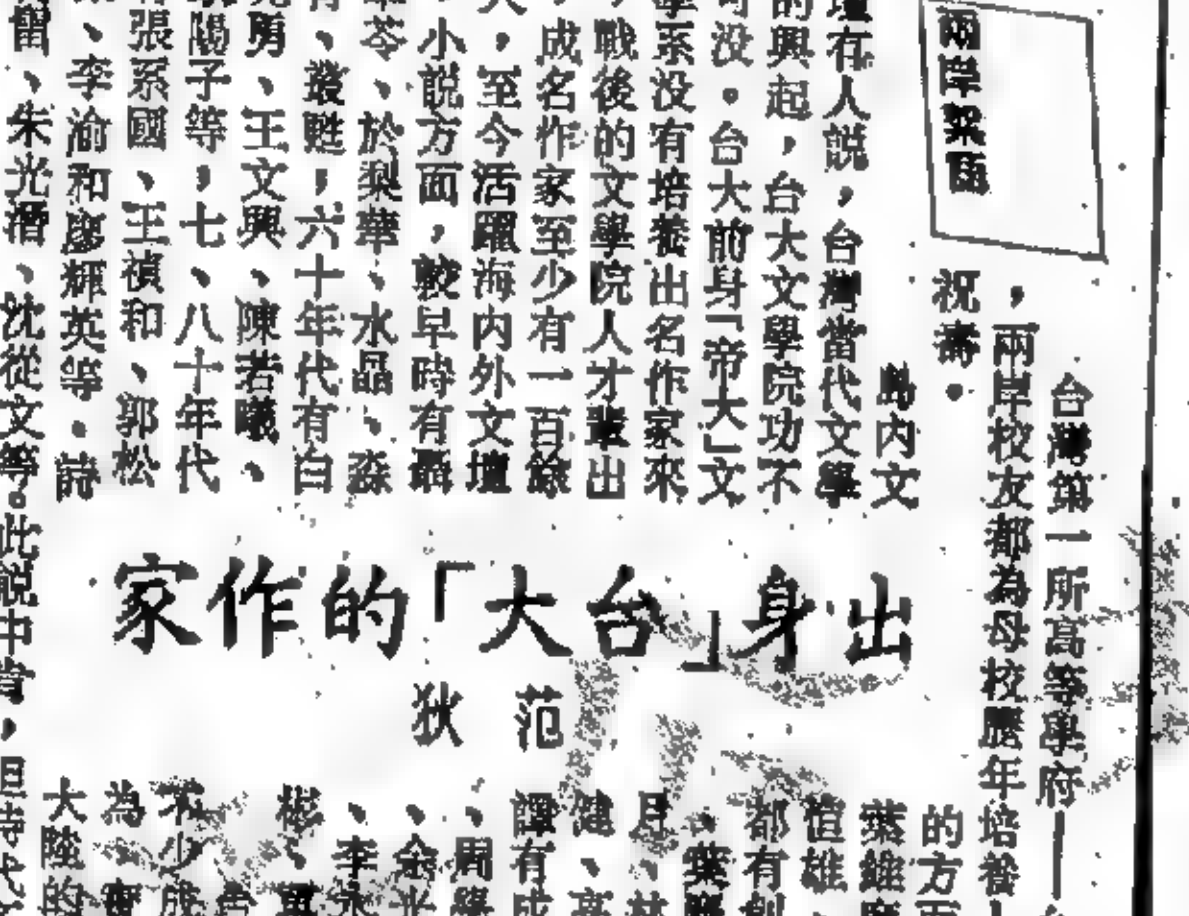 兩岸
台灣第一所高等學府——
，兩岸校友都為母校歷年培養
祝壽。
出身「台大」的作家
范狄
島內文
壇有人說，台灣當代文學
的興起，台大文學院功不
可没。台大前身「帝大」文
學系没有培養出名作家來
，戰後的文學院人才輩出
，成名作家至少有一百餘
人，至今活躍海内外文壇
。小說方面，較早時有聶
華苓、於梨華、水晶、森
、叢甦，六十年代有白
先勇、王文興、陳若曦、
歐陽子等，七、八十年代
有張系國、王禎和、郭松
、李渝和廖輝英等。詩
、朱光潛、沈從文等。此說中肯，但時代
的方面
葉維廉
愷雄
都有創
、葉
月、林
健、高
譚有成
、周
、余光
、李永
彬、
不少成
為、
大陸的